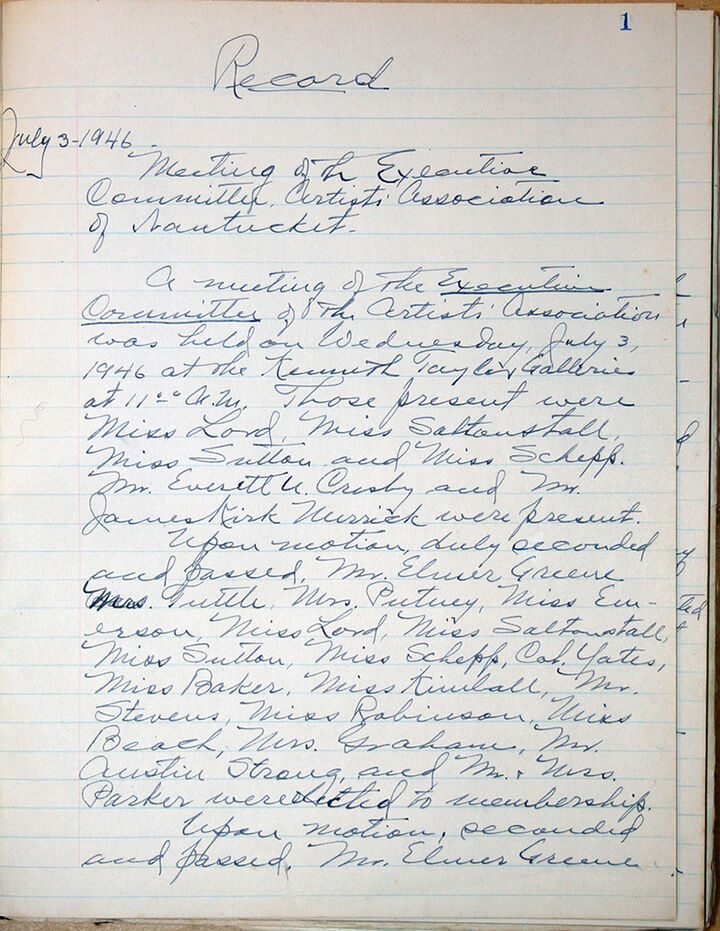 1
Record
July 3-1946
Meeting of the Executive
Committee, Artists' Association
of Nantucket.
A meeting of the Executive
Committee of the Artists' Association
was held on Wednesday, July 3,
1946 at the Kenneth Taylor Galleries
at 11:00 A.M. Those present were
Miss Lord, Miss Saltonstall,
Miss Sutton and Miss Schepp.
Mr. Everett U. Crosby and Mr.
James Kirk Merrick were present.
Upon motion, duly seconded
and passed, Mr. Elmer Greene
Mrs. Tuttle, Mrs. Putney, Miss Em-
erson, Miss Lord, Miss Saltonstall,
Miss Sutton, Miss Schepp, Col. Yates,
Miss Baker, Miss Kimball, Mr.
Stevens, Miss Robinson, Miss
Beach, Mrs. Graham, Mr.
Austin Strong, and Mr. & Mrs.
Parker were elected to membership.
Upon motion, seconded
and passed, Mr. Elmer Greene